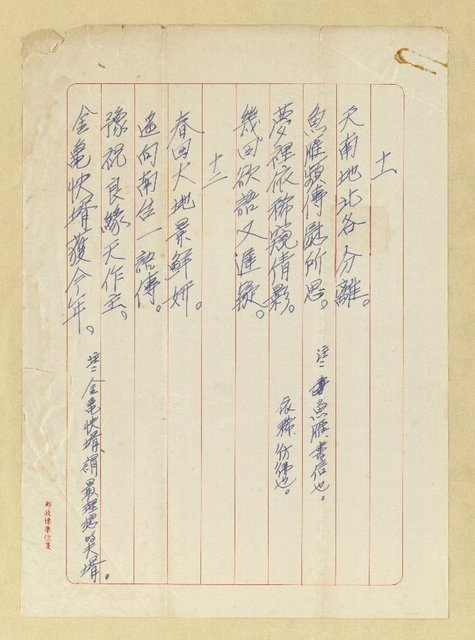 十一
天南地北各分離。
魚雁頻傳慰所思。 註:魚雁書信也。
夢裡依稀窺倩影。 依稀彷彿也。
幾回欲語又遲疑。
十二
春回大地景鮮妍。
遙向南台一語傳。
豫祝良緣天作玉。
金亀快壻獲今年。 註:金亀快壻謂最理想女壻。
郵政標準信箋